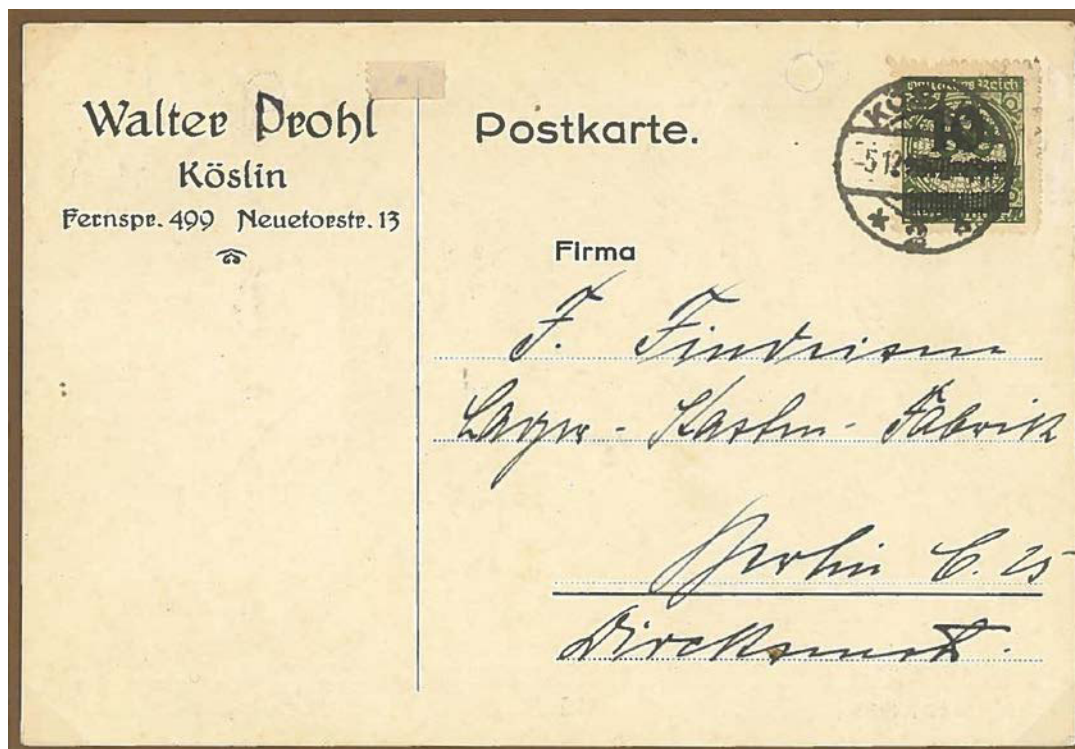 Walter Prohl
Köslin
Fernspr. 499 Neuetorstr. 13
Postkarte.
Deutsches Reich
10
KÖS
-5.12
Firma
F.
Lager-Kasten-Fabrik
Berlin C. 25
Dircksenstr.